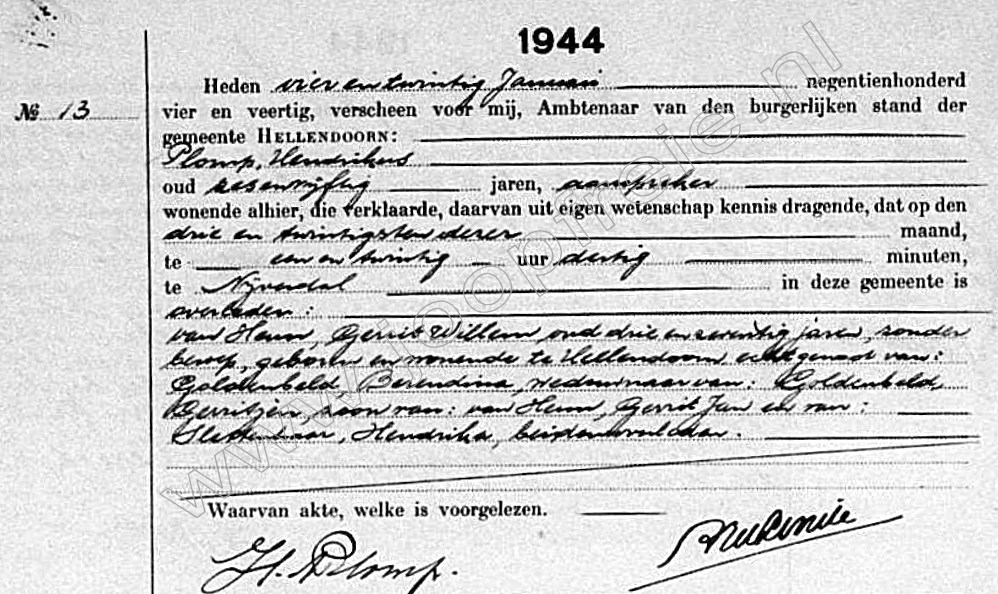 1944
Heden vier en twintig Januari negentienhonderd
№ 13
vier en veertig, verscheen voor mij, Ambtenaar van den burgerlijken stand der
gemeente HELLENDOORN:
Plomp, Hendrikus
oud zesenvijftig jaren, aanspreker
wonende alhier, die verklaarde, daarvan uit eigen wetenschap kennis dragende, dat op den
drie en twintigsten dezer maand,
te een en twintig uur dertig minuten,
te Nijverdal in deze gemeente is
overleden:
van Henn, Gerrit Willem, oud drie en zeventig jaren, zonder
beroep, geboren en wonende te Hellendoorn, echtgenoot van:
Goldenbeld Berendina, weduwnaar van: Goldenbeld,
Gerritjen, zoon van: van Henn, Gerrit Jan en van:
Hendrika, beiden overleden.
Waarvan akte, welke is voorgelezen.
H. Plomp.
www.roopnie.nl